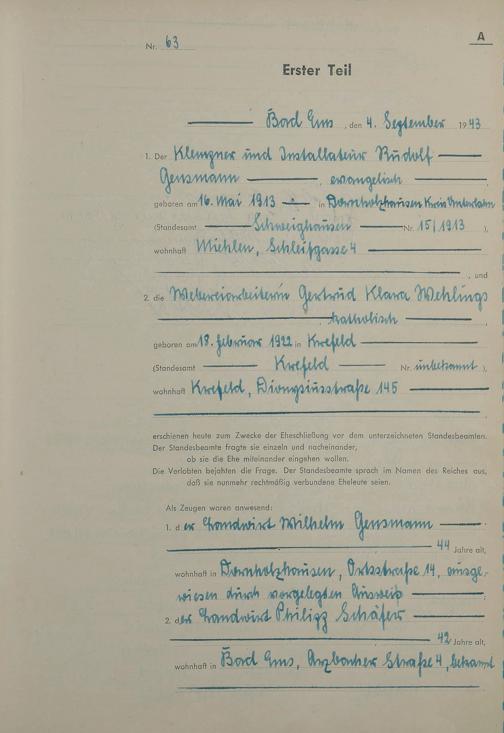 A
Nr. 63
Erster Teil
Bad Ems, den 4. September 1943
1. Der Klempner und Installateur Rudolf
Gensmann, evangelisch
geboren am 16. Mai 1913 in Dornholzhausen Kreis Unterlahn
(Standesamt Schweighausen Nr. 15/1913),
wohnhaft Miehlen, Schleifgasse 4
, und
2. die Webereiarbeiterin Gertrud Klara Wehlings
, katholisch
geboren am 18. Februar 1922 in Krefeld
(Standesamt Krefeld Nr. unbekannt),
wohnhaft Krefeld, Dionysiusstraße 145
erschienen heute zum Zwecke der Eheschließung vor dem unterzeichneten Standesbeamten.
Der Standesbeamte fragte sie einzeln und nacheinander,
ob sie die Ehe miteinander eingehen wollen.
Die Verlobten bejahten die Frage. Der Standesbeamte sprach im Namen des Reiches aus,
daß sie nunmehr rechtmäßig verbundene Eheleute seien.
Als Zeugen waren anwesend:
1. der Landwirt Wilhelm Gensmann
44 Jahre alt,
wohnhaft in Dornholzhausen, Ortsstraße 14, ausge-
wiesen durch vorgelegten Ausweis
2. der Landwirt Philipp Schäfer
42 Jahre alt,
wohnhaft in Bad Ems, Arzbacher Straße 4, bekannt